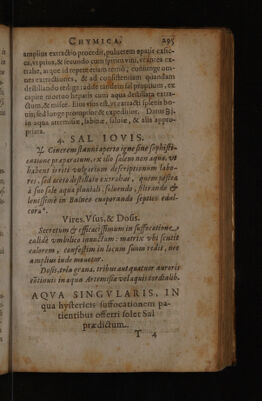 CHYMICA. 295
amplius extractio procedit, pulverem opaije exsic-
ca, vt prius, & secundo cum spiritu vini, tearites ex-
trahe, atque id repete etiam tertio, coniunge om-
nes extractiones, & ad consistentiam quandam
destillando redige: adde tandem sal proprium, ex
capite mortuo hepatis cum aqua destillata extra-
ctum, & misce. Eius vsus est, vt extracti splenis bo-
uini, sed longe promptior & expeditior. Datur ℨj.
in aqua artemisiæ, sabinæ, saluiæ, & aliis appro-
priata.
4. SAL IOVIS.
℞. Cinerem stanni aperto igne sine sophisti-
catione præparatum, ex illo salem non aqua, vt
habent irriti vulgarium descriptionum labo-
res, sed aceto destillato extrahas, quem postea
à suo sale aqua pluuiali, soluendo, filtrando &
lenissimè in Balneo euaporando septies edul-
cora.
Vires. Vsus. & Dosis.
Secretum & efficacissimum in suffocatione,
calide vmbilico inunctum: matrix vbi sentit
calorem, confestim in locum suum redit, nec
amplius inde mouetur.
Dosis, tria grana, tribus aut quatuor auroris
exeuntis in aqua Artemisiæ vel aquis cordialib.
AQVA SINGVLARIS, IN
qua hystericis suffocationem pa-
tientibus offerri solet Sal
prædictum.
T 4